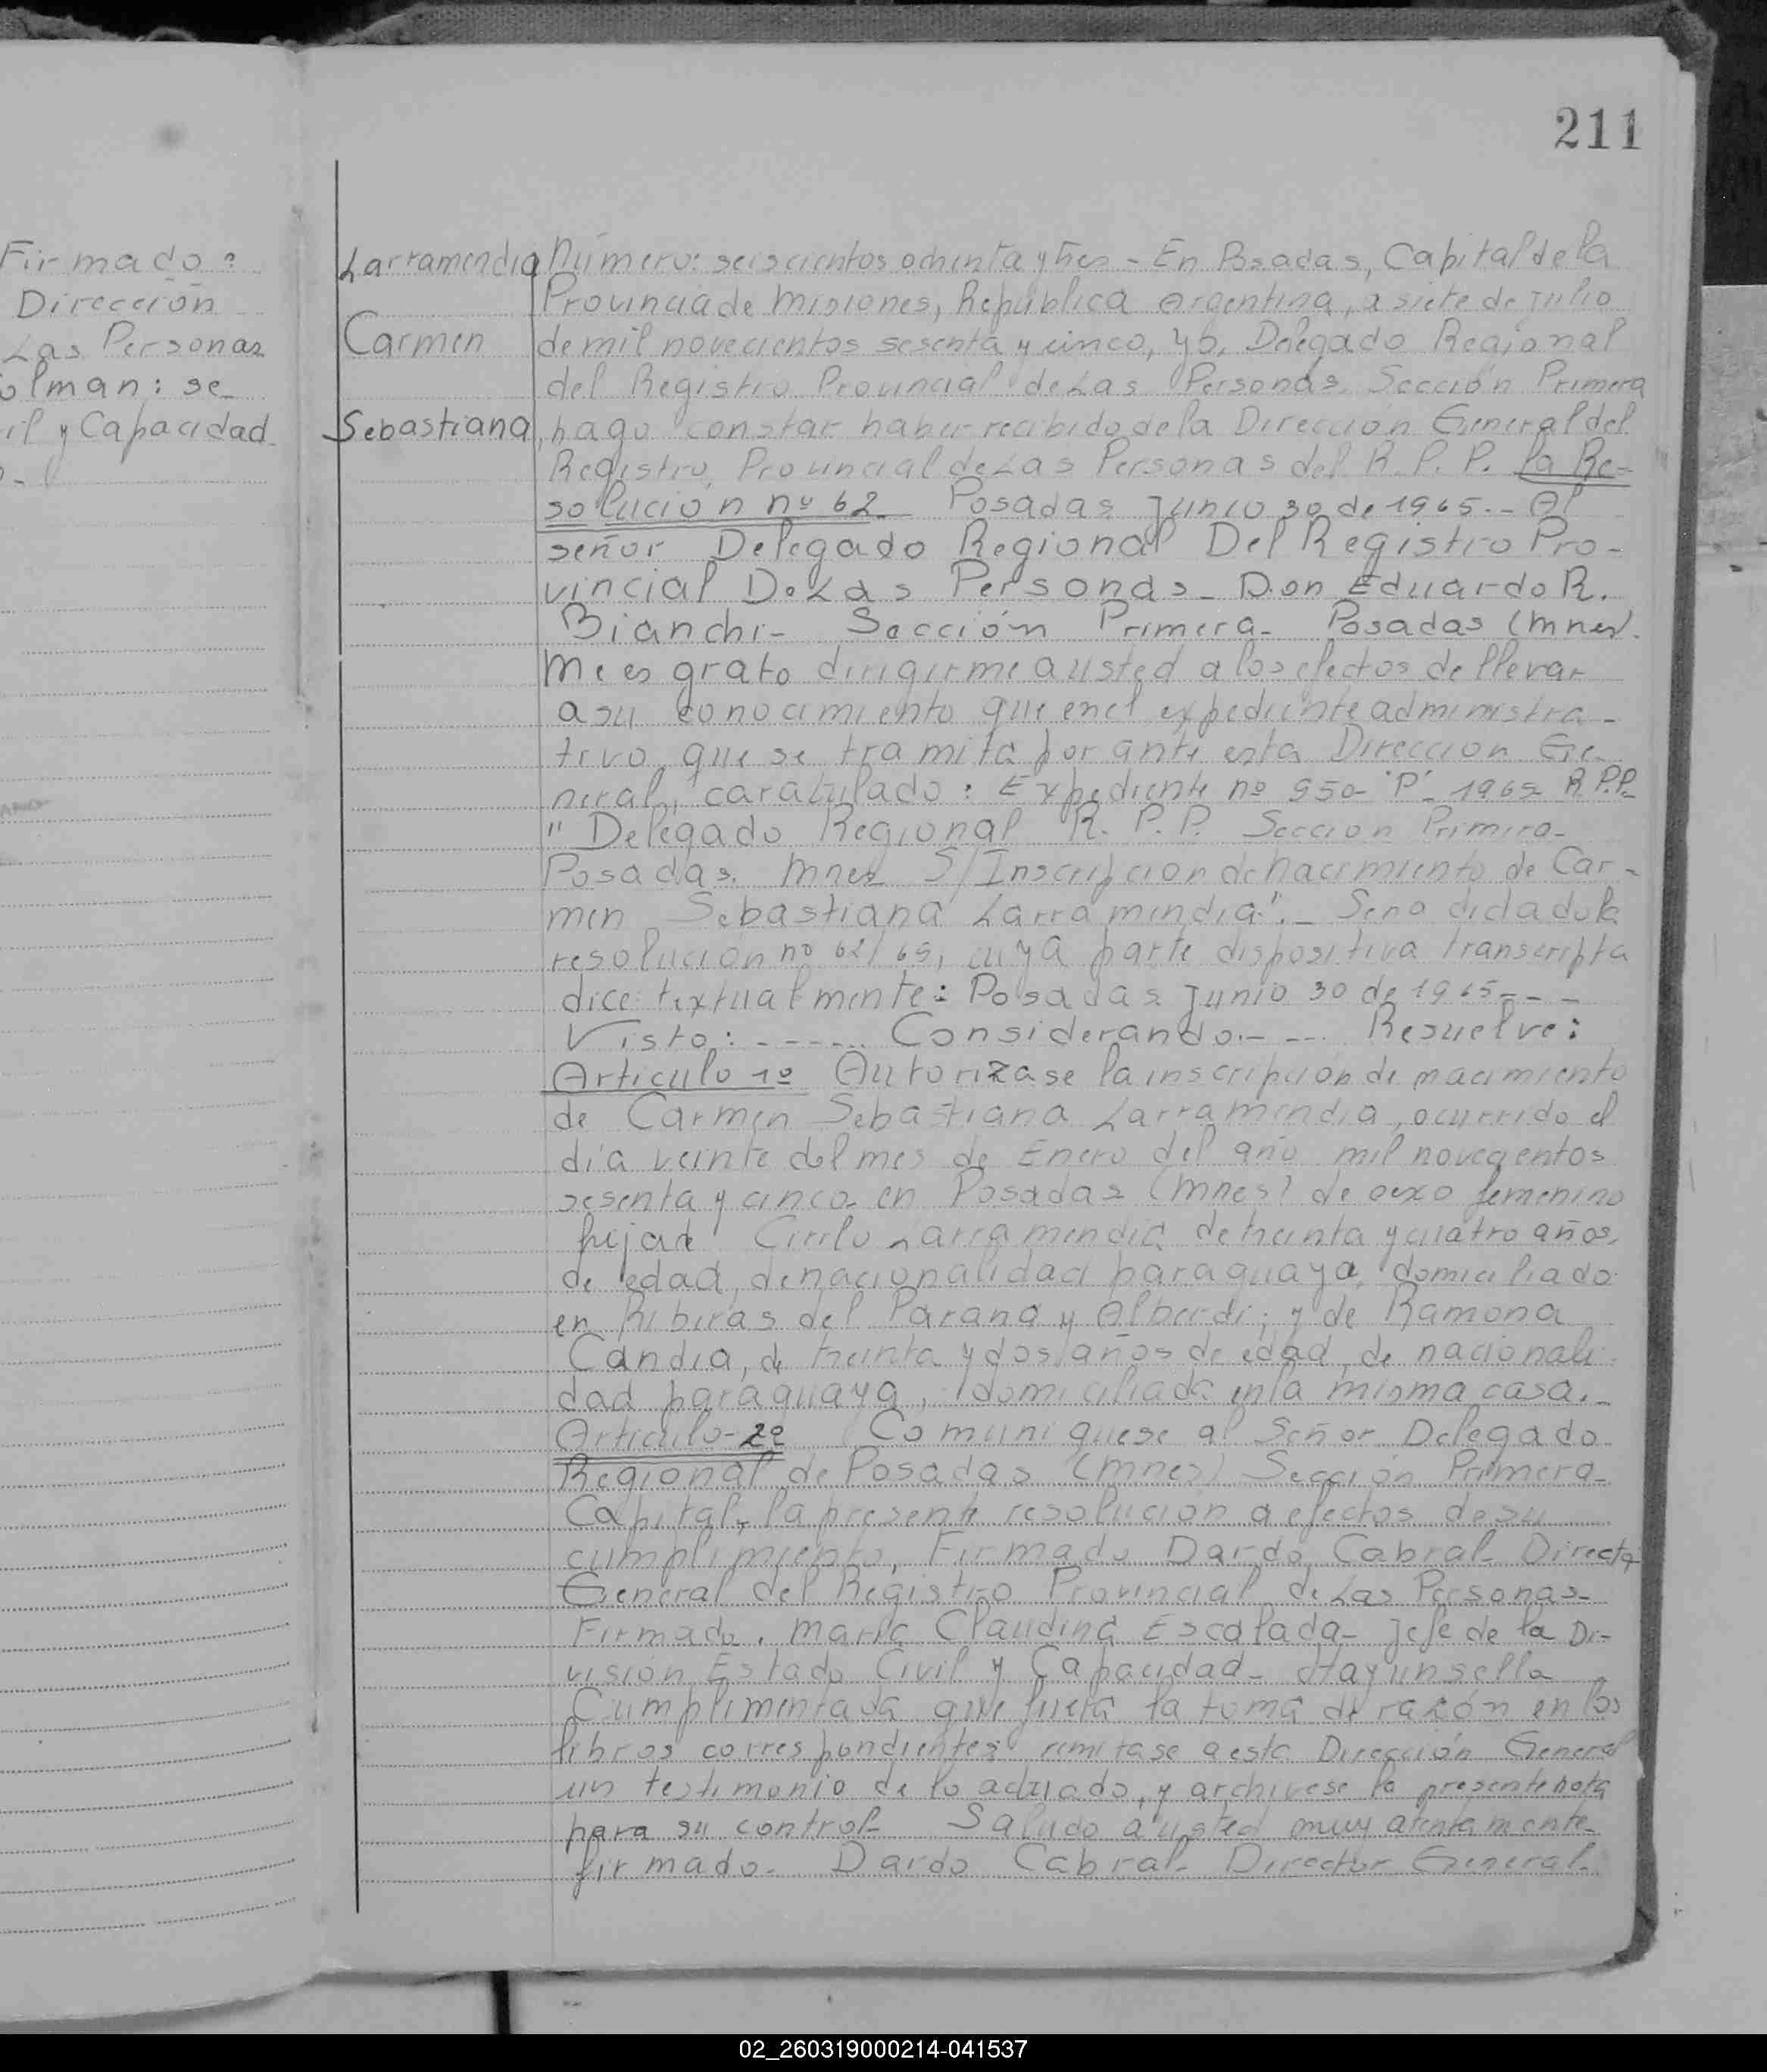 211
Firmado:
Dirección
Las Personas
olman: se
il y Capacidad
Larramendia
Carmen
Sebastiana
Número: seiscientos ochenta y tres - En Posadas, Capital de la
Provincia de Misiones, República Argentina, a siete de Julio
de mil novecientos sesenta y cinco, yo, Delegado Regional
del Registro Provincial de Las Personas Sección Primera
hago constar haber recibido de la Dirección General del
Registro Provincial de Las Personas del R. P. P. la Re-
solución nº 62 Posadas Junio 30 de 1965.- Al
señor Delegado Regional Del Registro Pro-
vincial De Las Personas - Don Eduardo R.
Bianchi - Sección Primera - Posadas (Mnes).
Me es grato dirigirme a usted a los efectos de llevar
a su conocimiento que en el expediente administra-
tivo, que se tramita por ante esta Direccion Ge-
neral, caratulado: Expediente nº 950 - "P" - 1965 R.P.P.
"Delegado Regional R. P. P. Seccion Primera -
Posadas. Mnes S/Inscripcion de nacimiento de Car-
men Sebastiana Larramendia".- Se ha dictado la
resolución nº 62/65, cuya parte dispositiva transcripta
dice textualmente: Posadas Junio 30 de 1965 - - -
Visto: - - - - - Considerando.- - - Resuelve:
Articulo 1º Autorizase la inscripción de nacimiento
de Carmen Sebastiana Larramendia, ocurrido el
día veinte del mes de Enero del año mil novecientos
sesenta y cinco en Posadas (Mnes) de sexo femenino
hija de Cirilo Larramendia de treinta y cuatro años,
de edad, de nacionalidad paraguaya, domiciliado
en Riberas del Parana y Alberdi; y de Ramona
Candia, de treinta y dos años de edad, de nacionali
dad paraguaya, domiciliada en la misma casa.-
Articulo - 2º Comuniquese al Señor Delegado
Regional de Posadas (Mnes) Sección Primera -
Capital, la presente resolución a efectos de su
cumplimiento, Firmado Dardo Cabral - Director
General del Registro Provincial de Las Personas -
Firmado. Maria Claudina Escalada - Jefe de la Di-
visión Estado Civil y Capacidad - Hay un sello
Cumplimentada que fuera la toma de razón en los
libros correspondientes remitase a esta Dirección General
un testimonio de lo actuado, y archivese la presente nota
para su control - Saludo a usted muy atentamente -
firmado - Dardo Cabral - Director General -
02_260319000214-041537